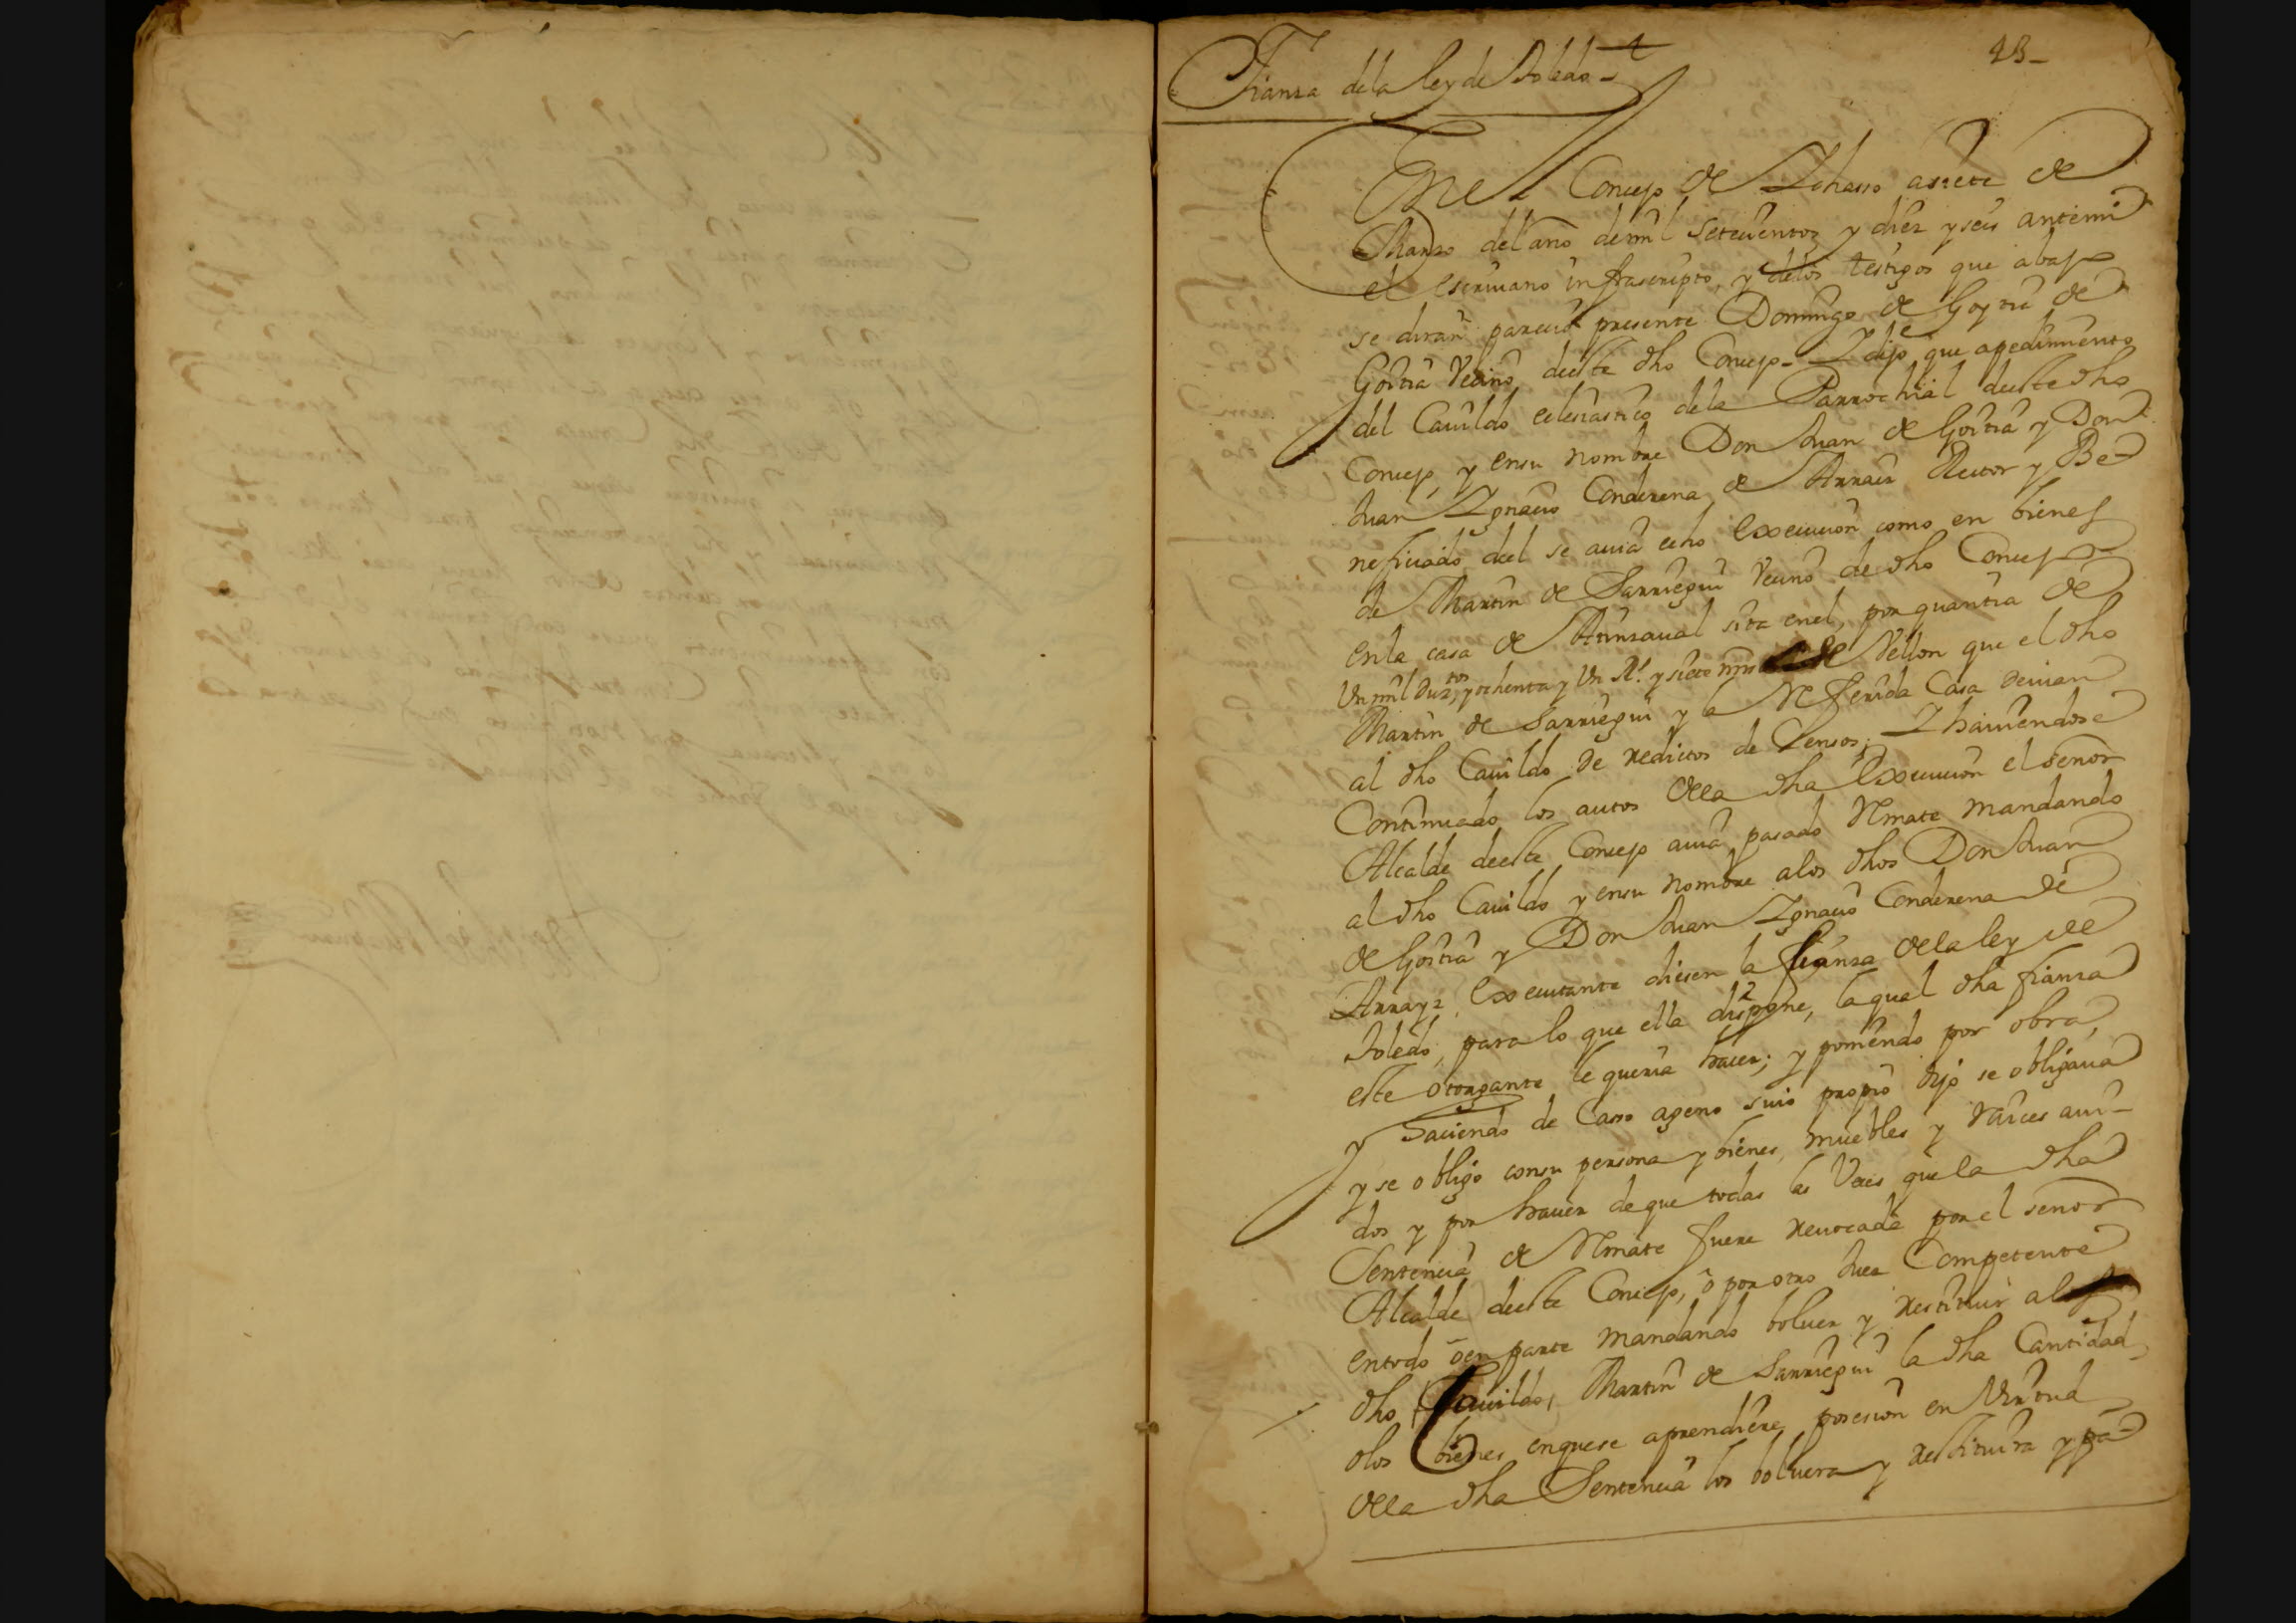 43_
Fianza dela ley de Toledo
En el Concejo de Ychasso asiete de
Marzo del año demil setecientos y diez y seis antemi
el escriuano infrascripto, y delos testigos que abajo
se diran parecio presente Domingo de Goytia de
Goitia Vecino deeste dho Concejo_ Y dijo que apedimiento
del Cauildo eclesiastico dela Parrochial deeste dho
Concejo, y ensu nombre Don Juan de Goitia y Don
Juan Ygnacio Conderena de Arraiz Rector y Be-
neficiado del se auia echo execucion como en bienes
de Martin de Sarriegui Vecino de dho Concejo
enla casa de sita enel, por quantia de
Un mil duztos, y ochenta y Un Rs. y siete mrs de Vellon que el dho
Martin de Sarriegui y la Referida Casa deuian
al dho Cauildo de redictos de Zensos; Y hauiendose
Continuado los autos dela dha Execucion el señor
Alcalde deeste Concejo auia pasado Remate mandando
al dho Cauildo y ensu nombre alos dhos Don Juan
de Goitia y Don Juan Ygnacio Conderena de
Arrayz executante diesen la fianza dela ley de
Toledo, para lo que ella dispone, laqual dha fianza
este otorgante le queria hacer; y poniendo por obra,
y haciendo de Caso ageno suio propio dijo se obligaua
y se obligo consu persona y bienes, muebles y raices aui-
dos y por hauer de que todas las Veces que la dha
Sentencia de Remate fuere reuocada por el señor
Alcalde deeste Concejo, o por otro Juez Competente
entodo o en parte mandando boluer y restituir al
dho Cauildo, Martin de Sarriegui la dha Cantidad
olos bienes enquese aprendiere, posesion en Virtud
dela dha Sentencia los boluera y restituira y pa-